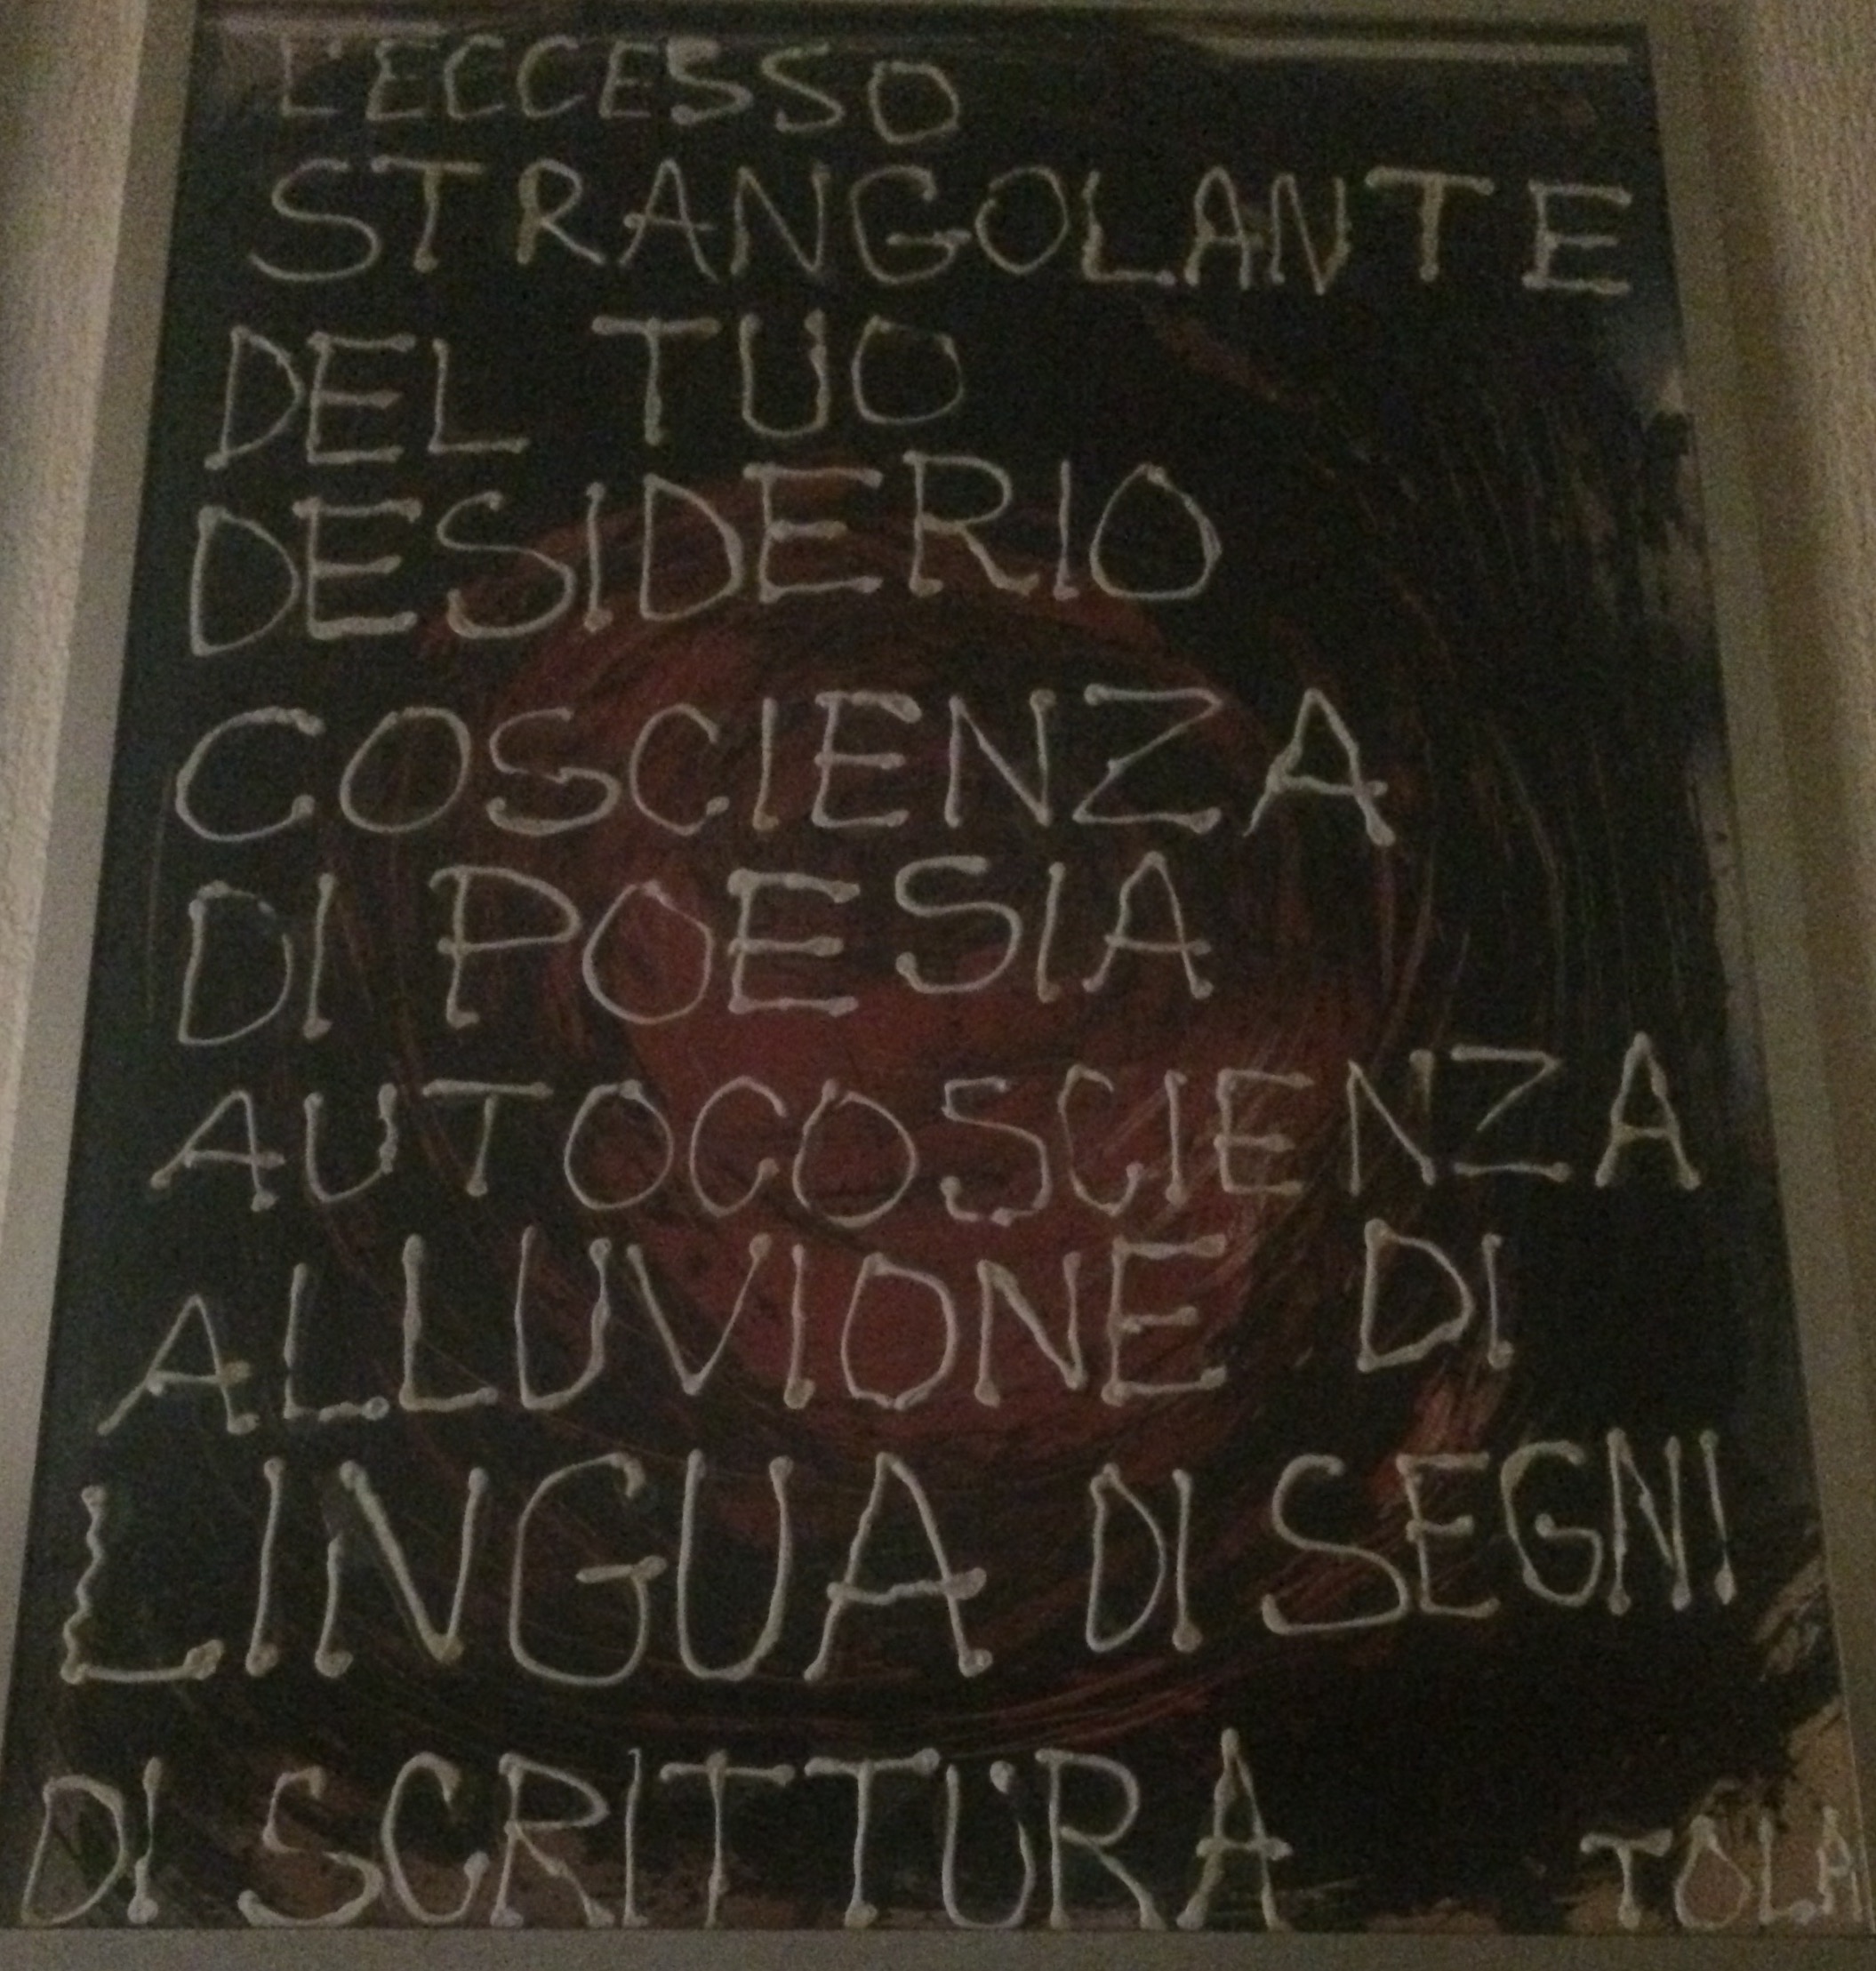 L'ECCESSO
STRANGOLANTE
DEL TUO
DESIDERIO
COSCIENZA
DI POESIA
AUTOCOSCIENZA
ALLUVIONE DI
LINGUA DI SEGNI
DI SCRITTURA
TOLA